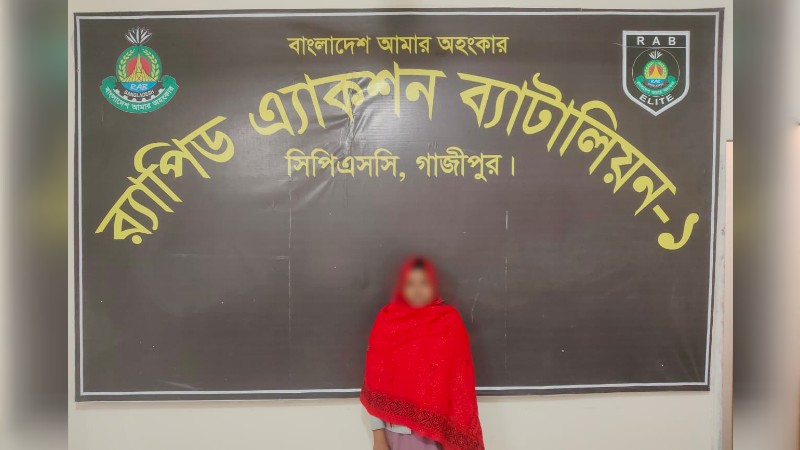 বাংলাদেশ আমার অহংকার
র‍্যাপিড এ্যাকশন ব্যাটালিয়ন-১
সিপিএসসি, গাজীপুর।
RAB
BANGLADESH
বাংলাদেশ আমার অহংকার
RAB
ELITE